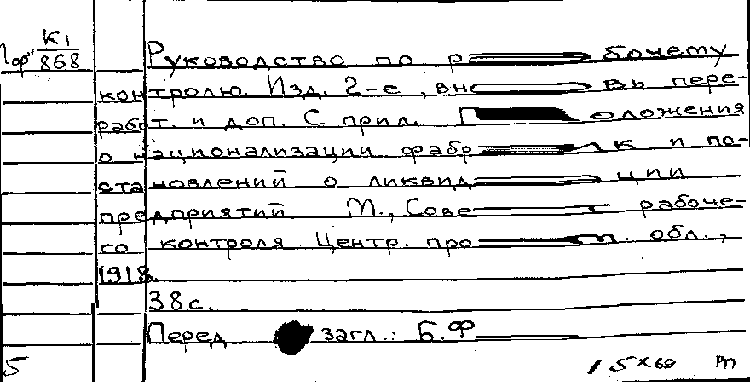 Гор К1/868
Руководство по р бочему
контролю. Изд. 2-е, вн вь пере-
работ. и доп. С прил. П оложения
о национализации фабр к и по-
становлений о ликвид ции
предприятий М., Сове рабоче-
го контроля Центр. про м. обл.,
1918.
38с.
Перед загл.: Б.Ф
5 15x60